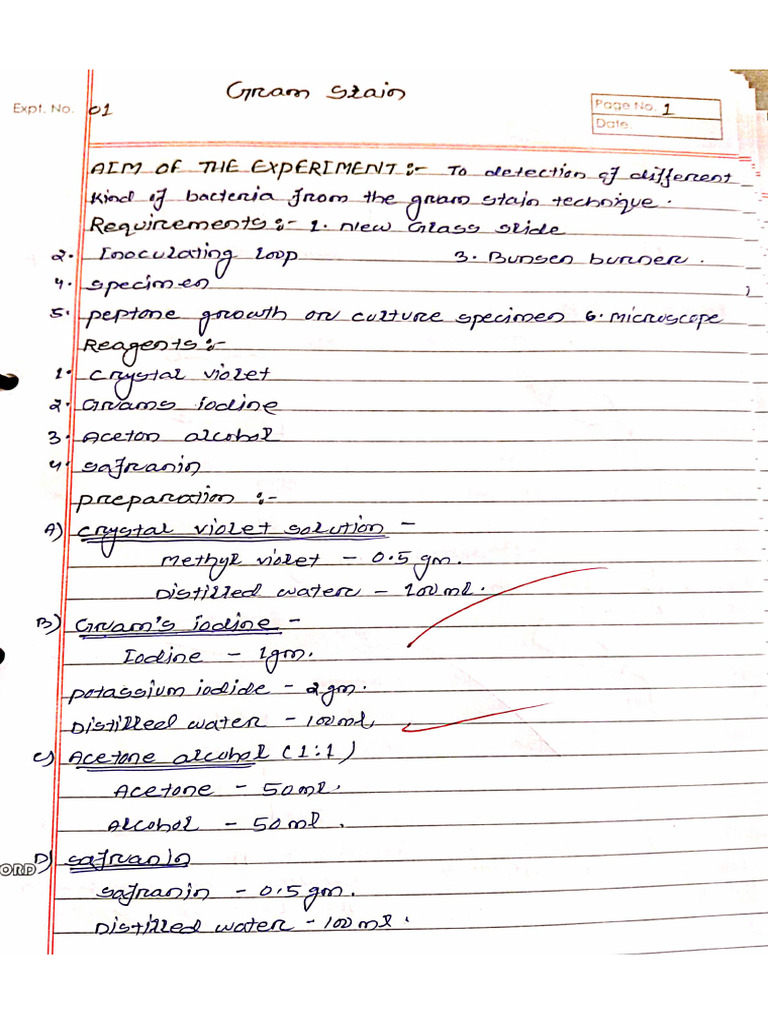 Gram Stain
Expt. No. 01
Page No. 1
Date.
AIM OF THE EXPERIMENT :- To detection of different
kind of bacteria from the gram stain technique.
Requirements :- 1. New Glass slide
2. Inoculating loop 3. Bunsen burner .
4. specimen
5. peptone growth or culture specimen 6. microscope
Reagents :-
1. crystal violet
2. Grams Iodine
3. Aceton alcohol
4. safranin
preparation :-
A) crystal violet solution -
Methyl violet - 0.5 gm.
Distilled water - 100 ml.
B) Gram's iodine -
Iodine - 1gm.
potassium iodide - 2gm.
Distilleel water - 100ml,
C) Acetone alcohol (1:1)
Acetone - 50ml.
Alcohol - 50 ml .
D) safranin
ORD
safranin - 0.5 gm.
Distilled water - 100 ml .